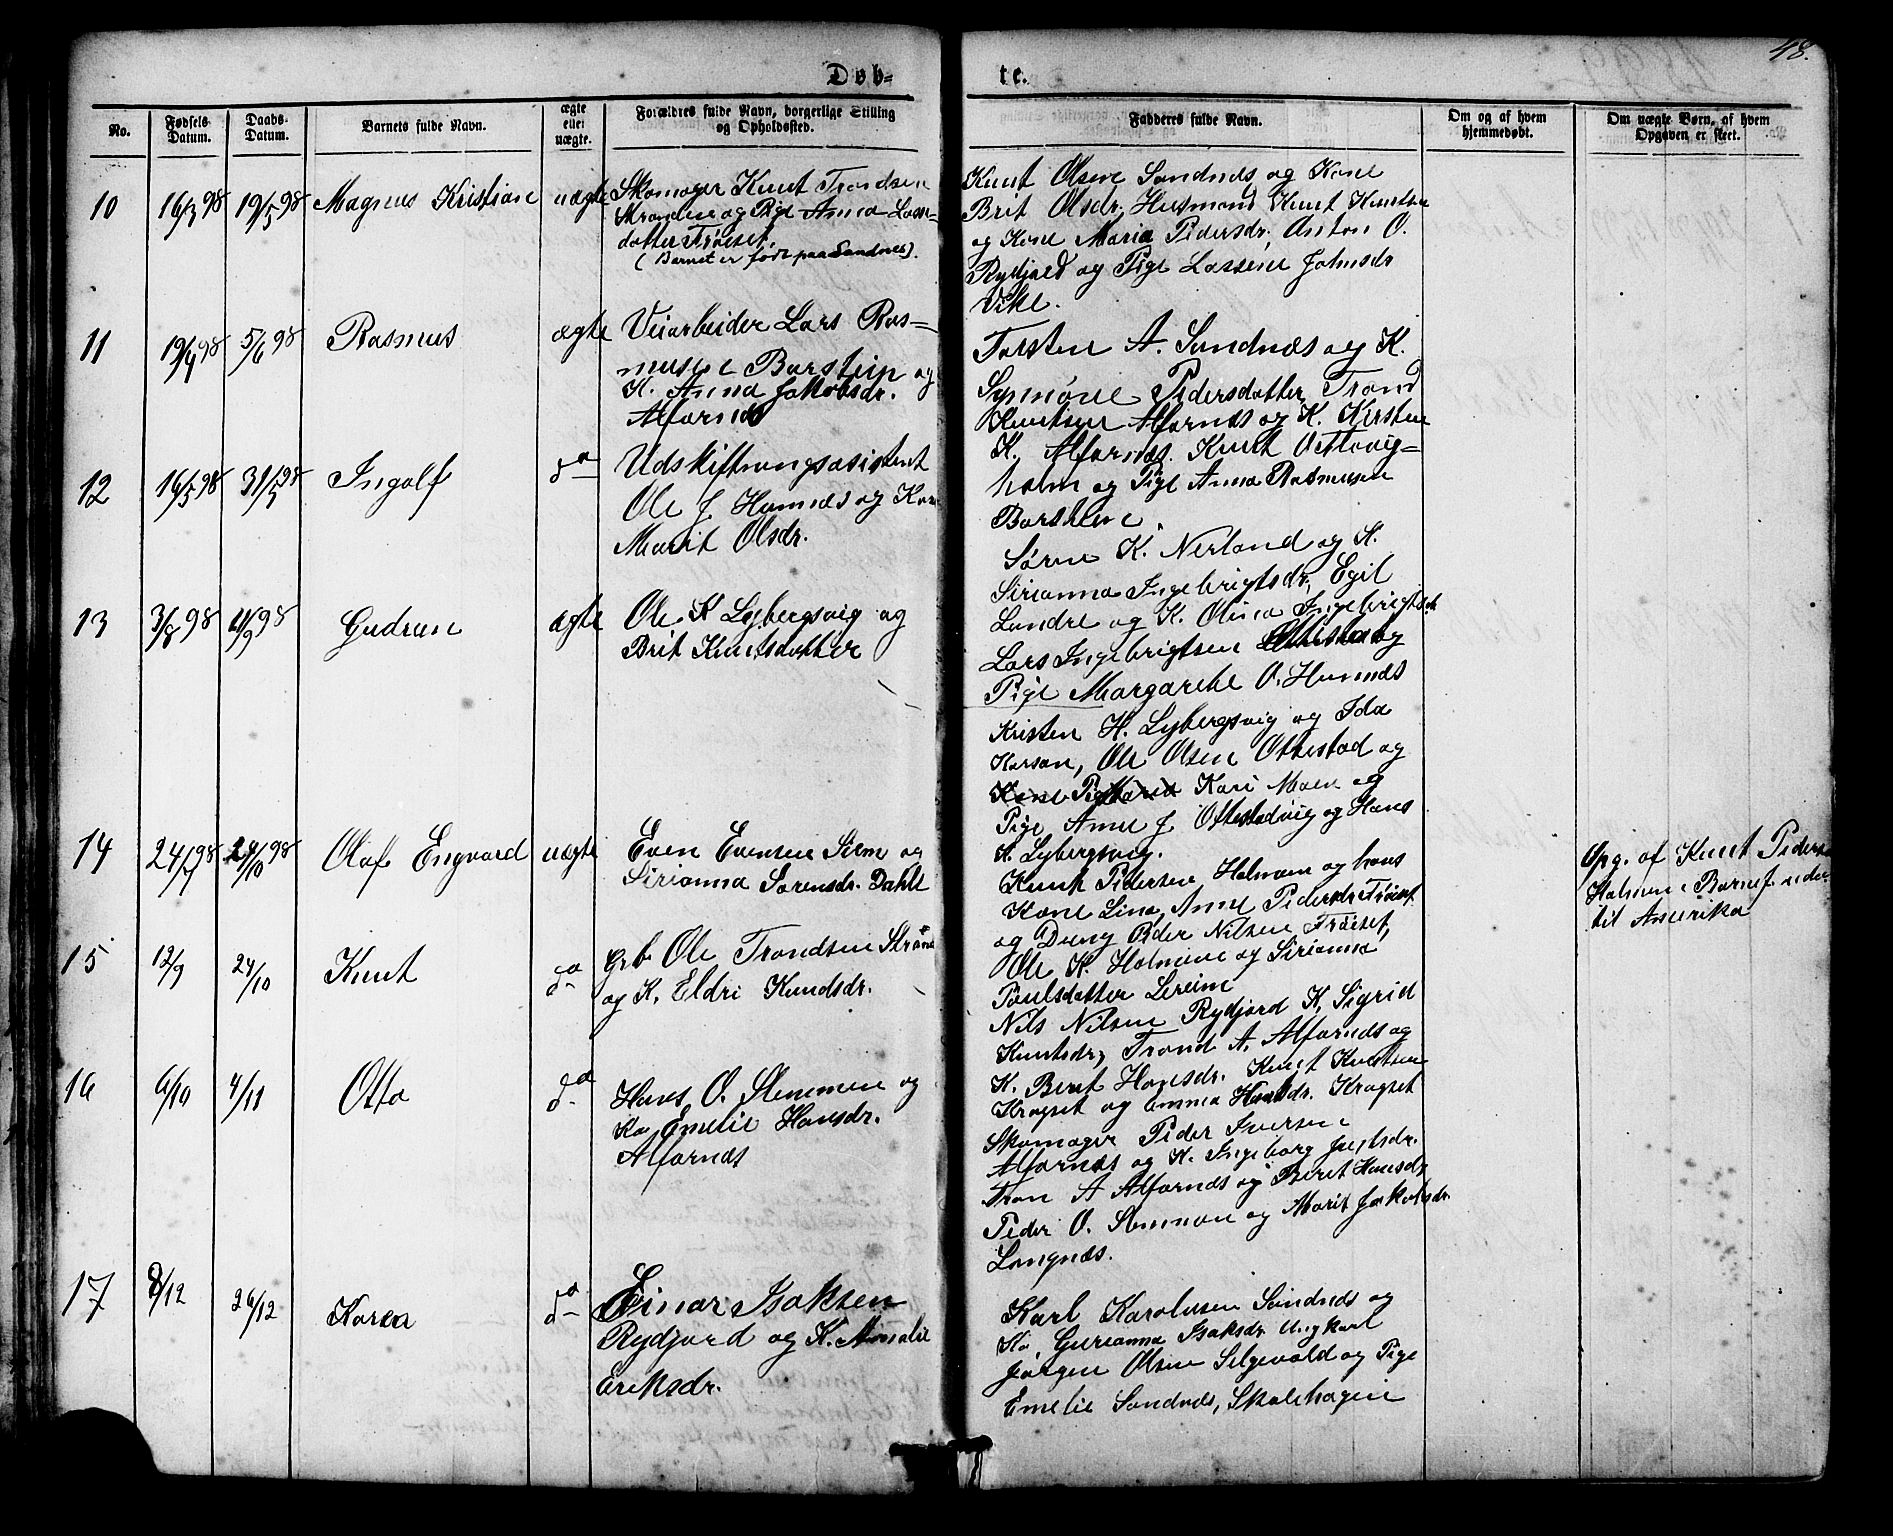 48.
Døb-
te.
No.
Fødsels
Datum.
Daabs-
Datum.
Barnets fulde Navn.
ægte
eller
uægte.
Forældres fulde Navn, borgerlige Stilling
og Opholdssted.
Fadderes fulde Navn.
Om og af hvem
hjemmedøbt.
Om uægte Børn, af hvem
Opgaven er skeet.
10
16/3 98
19/5 98
Magnus Kristian
uægte
Skomager Knut Trondsen
og Pige Anna Lasse-
datter Frøiset.
(Barnet er født paa Sandnes).
Knut Olsen Sandnæs og Kone
Brit Olsdr. Husmand Knut Knutsen
og Kone Maria Pedersdr, Anton O.
Rydjord og Pige Lassene Johnsdr
Vike.
11
19/4 98
5/6 98
Rasmus
ægte
Veiarbeider Lars Ras-
musen Barstein og
K. Anna Jakobsdr.
Alfarnæs
Torsten A. Sandnæs og K.
Synnøve Pedersdatter, Trond
Knutsen Alfarnæs og K. Kirsten
K. Alfarnæs. Knut
holm og Pige Anna Rasmusen
Barstein.
12
16/5 98
31/5 98
Ingolf
do
Udskiftningsasistent
Ole J. Hamnæs og Kone
Marit Olsdr.
Søren K. Nerland og K.
Sirianna Ingebrigtsdr, Egil
Landre og K. Olina Ingebrigtsdr
Lars Ingebrigtsen Ottestad og
Pige Margarethe O. Hamnæs
13
3/8 98
4/9 98
Gudrun
ægte
Ole K Lybergsvig og
Brit Knutsdatter
Kristen H. Lybergsvig og Ida
Karsan, Ole Olsen Ottestad og
Kone Pige Maria Kari Moen og
Pige Anne J. Ottestadvig og Hans
K. Lybergsvig.
14
24/7 98
24/10 98
Olaf Engvard
uægte
Even Evensen Siem og
Sirianna Sørensdr. Dahle
Knut Pedersen Holmem og hans
Kone Lina, Anne Pedersdr Frøiset
og Dreng Peder Nilsen Frøiset,
Opg. af Knut Peders
Holmen Barnef. reder
til Amerika
15
12/9
24/10
Knut
do
Grb Ole Trondsen Strane
og K. Eldri Knudsdr.
Ole K. Holmene og Sirianna
Paulsdatter Lereim
Nils Nilsen Rydjord K. Sigrid
Knutsdr, Trond A. Alfarnæs og
K. Beret Hansdr. Knut Knutsen
Kragset og Emma Knutsdr. Kragset
16
6/10
4/11
Otto
do
Hans O. Stemmen og
Ko Emelie Hansdr.
Alfarnæs
Skomager Peder Iversen
Alfarnæs og K. Ingeborg
Tron A Alfarnæs og Beret Hansdr,
Peder O. Stemmen og Marit Jakobsdr.
Langnæs.
17
8/12
26/12
Karen
do
Einar Isaksen
Rydjord og K. Amalie
Eriksdr.
Karl Karolusen Sandnæs og
Ko, Gurianna Isaksdr. Ungkarl
Jørgen Olsen Selgevold og Pige
Emelie Sandnæs, Skolehagen